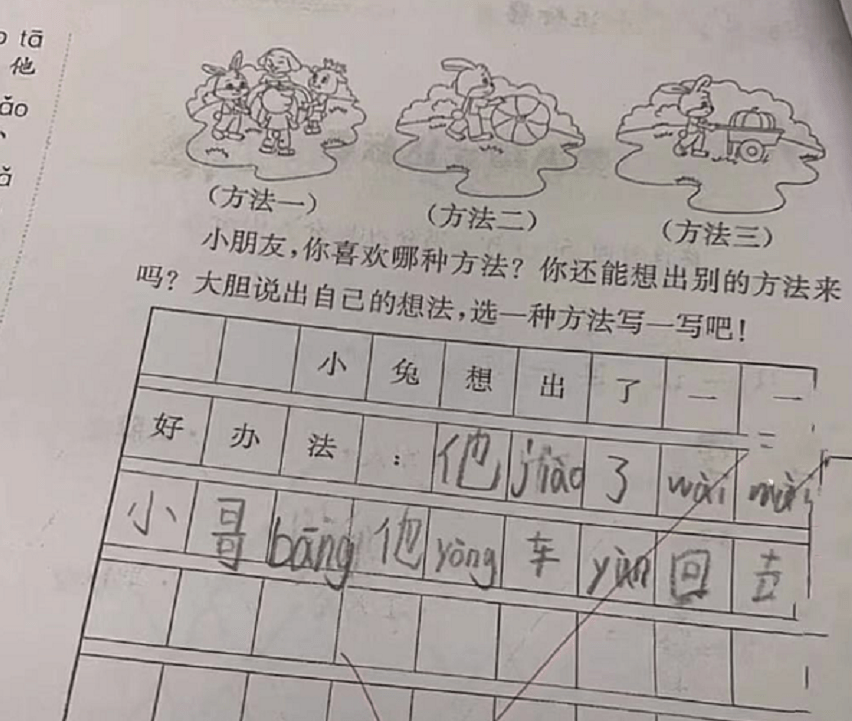 tā
他
ǎo
(方法一)
(方法二)
(方法三)
小朋友,你喜欢哪种方法?你还能想出别的方法来
吗?大胆说出自己的想法,选一种方法写一写吧!
小兔想出了一
好办法:他jiào了wài mài
小哥bāng他yòng车yùn回去